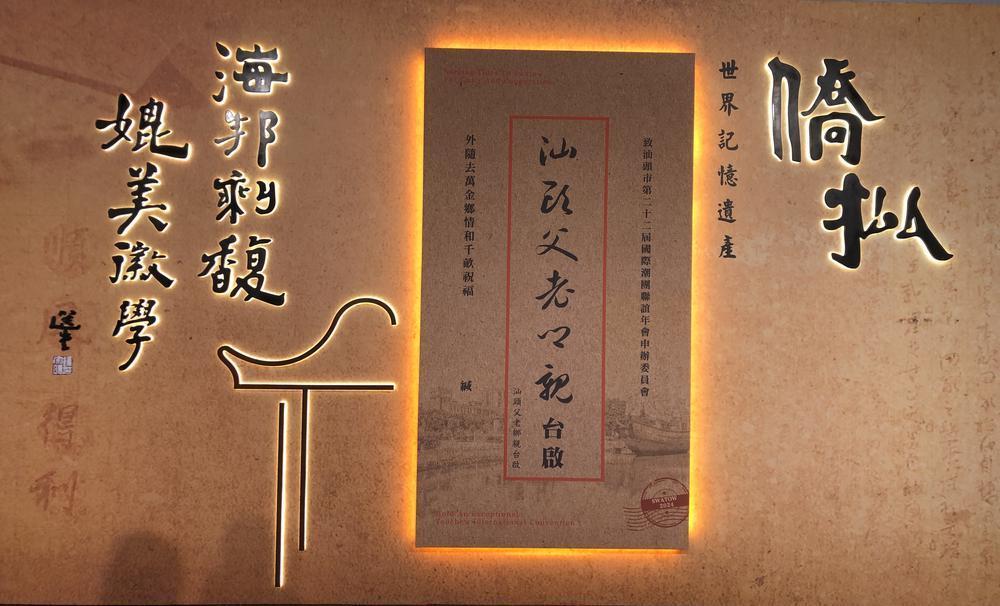 僑批
世界記憶遺產
致汕頭市第二十二屆國際潮團聯誼年會申辦委員會
汕頭父老鄉親台啟
汕頭父老鄉親台啟
外隨去萬金鄉情和千畝祝福
緘
SWATOW
2024
Hold an exceptional
Teochew International Convention
海邦剩馥
媲美徽學
順風得利